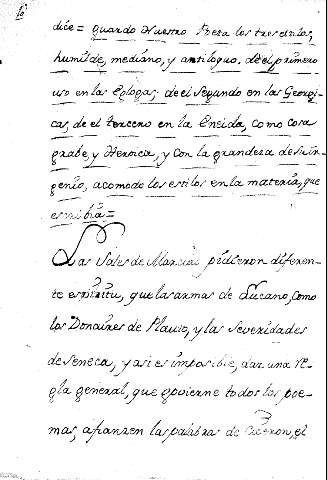 dice= quando Nuestro Poeta los tres estilos,
humilde, mediano, y antiloquo. de el primero
uso en las Eglogas; de el Segundo en las Georgi-
cas, de el tercero en la Eneida, como cosa
grabe, y Heroica, y con la grandeza de su in-
genio, acomodo los estilos en la materia, que
escribia=
Las Sales de Marcial pidieron diferen-
te espiritu, que las armas de Lucano, como
los Donaires de Plauto, y las Severidades
de Seneca, y asi es imposible, dar una re-
gla general, que govierne todos los poe-
mas, afianzen las palabras de Ciceron, el